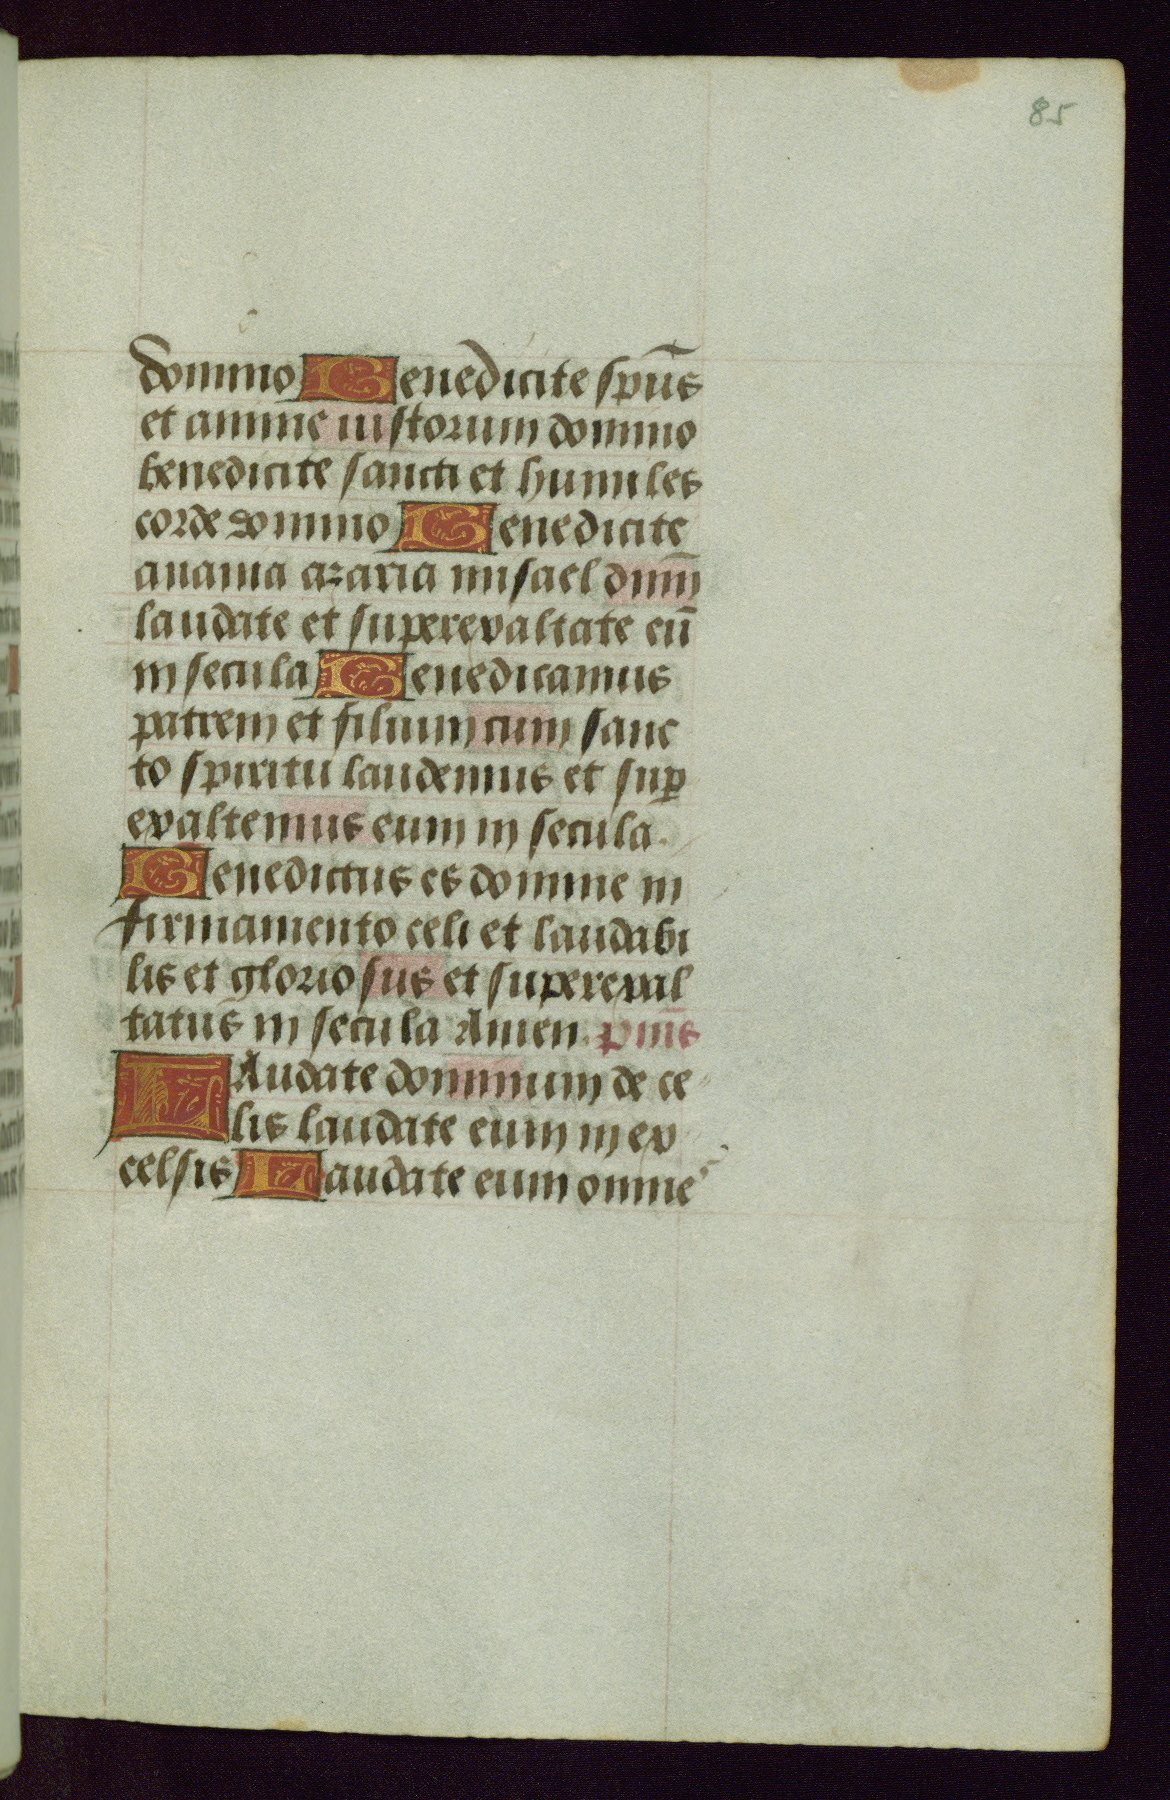 85
domino Benedicite spūs
et anime iustorum domino
benedicite sancti et humiles
corde domino Benedicite
anania azaria misael dnm̄
laudate et superexaltate eū
in secula Benedicamus
patrem et filium cum sanc
to spiritu laudemus et suꝑ
exaltemus eum in secula.
Benedictus es domine in
firmamento celi et laudabi
lis et glorio sus et superexal
tatus in secula Amen. pm̄s
LAudate dominum de ce
lis laudate eum in ex
celsis Laudate eum omne